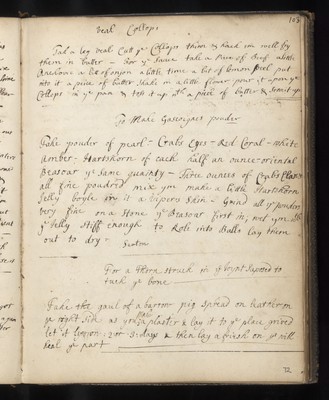 103
Veal Collops
Tak a leg veal Cutt ye Collops thinn & hack em well fry
them in butter - For ye Sauce take a Pint of Broth a little
Anchovie a bit of onjon a little time a bit of Lemon peel put
into it a piece of butter Rub'd in a little flower pour it upon ye
Collops in ye pan & toss it up wth a piece of butter & Serve it up
To Make Gascoignes powder
Take powder of pearl - Crabs Eyes - Red Coral - white
Amber - Hartshorn of each half an ounce oriental
Beasoar ye Same quantity - Three ounces of Crabs Claws
all fine poudred mix ym make a little Hartshorn
Jelly boyle in it a Vipers Skin - Grind all ye pouders
very fine on a Stone ye Beasoar first in, wet ym wth
ye jelly stiff enough to Role into Balls lay them
out to dry -
For a Thorn struck in ye Joynt Supposed to
tuch ye bone
Take the gaul of a barrow pig spread on leather on
ye right side as you a plaster & lay it to ye place greived
let it lye on 2 or 3 days & then lay a fresh on ye will
heal ye part